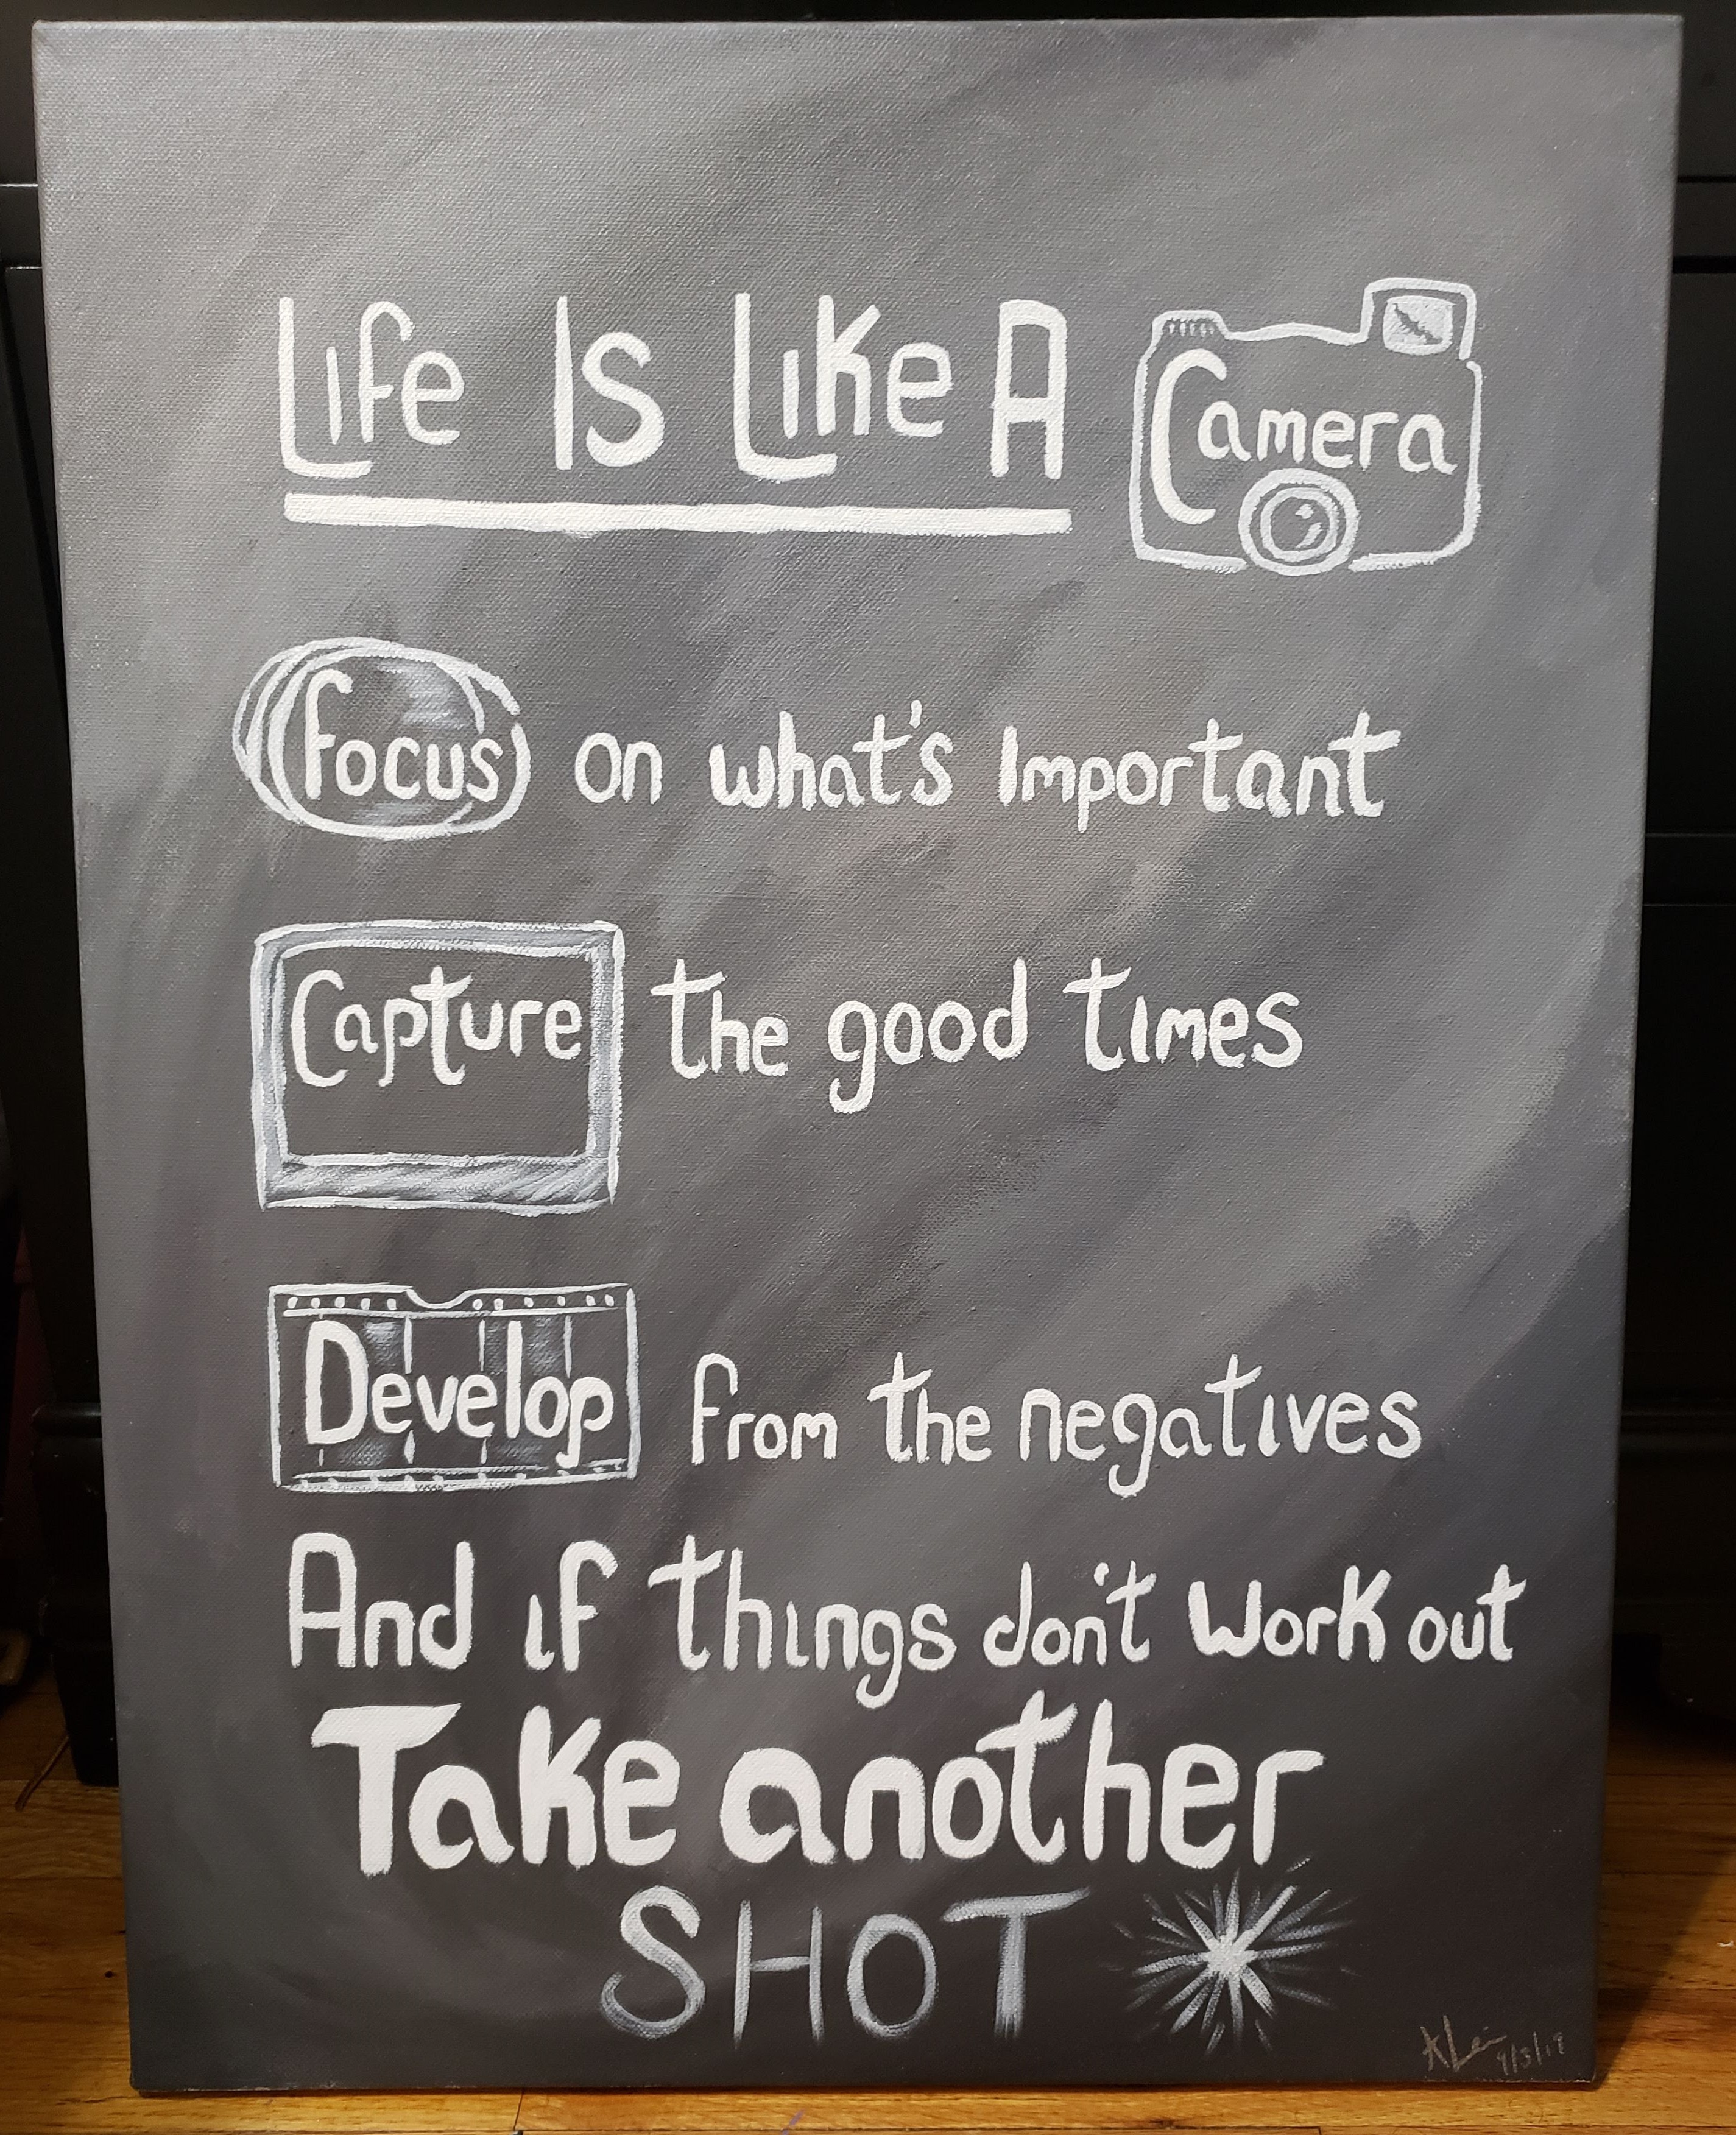 Life Is Like A Camera
Focus on what's Important
Capture the good times
Develop from the negatives
And if things don't work out
Take another
SHOT